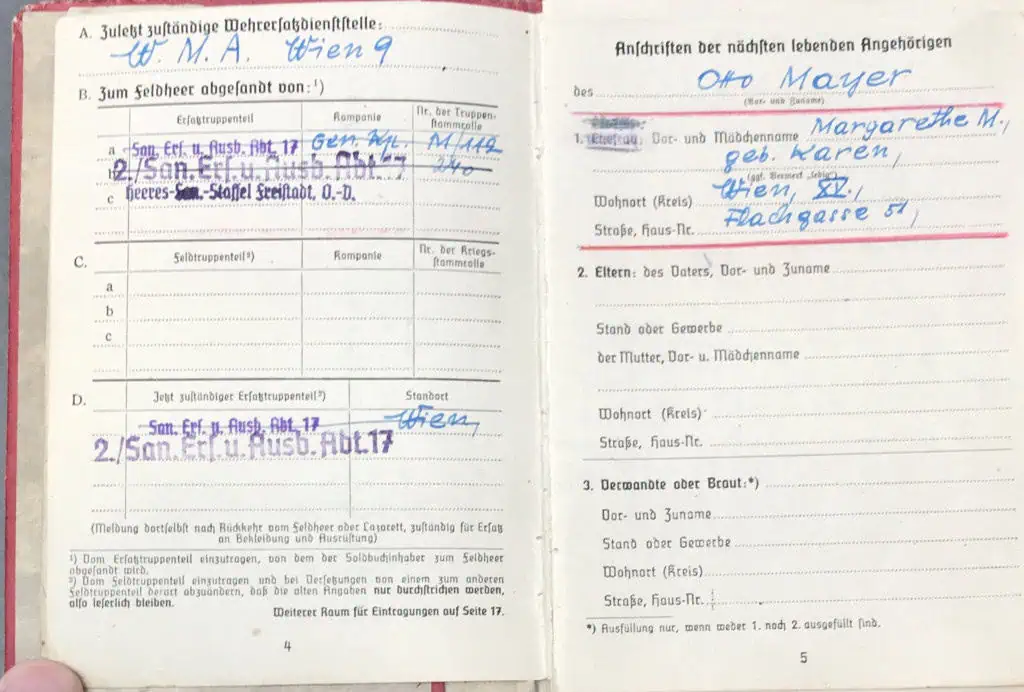 A. Zuletzt zuständige Wehrersatzdienststelle:
W. M. A. Wien 9
B. Zum Feldheer abgesandt von:¹)
Ersatztruppenteil Kompanie Nr. der Truppen-
stammrolle
a San. Ers. u. Ausb. Abt. 17 Gen. Kp. M/112
b 2./San. Ers. u. Ausb. Abt. 17 240
c Heeres-San.-Staffel Freistadt, O.-D.
C. Feldtruppenteil²) Kompanie Nr. der Kriegs-
stammrolle
a
b
c
D. Jetzt zuständiger Ersatztruppenteil²) Standort
San. Ers. u. Ausb. Abt. 17 Wien,
2./San. Ers. u. Ausb. Abt. 17
(Meldung dortselbst nach Rückkehr vom Feldheer oder Lazarett, zuständig für Ersatz
an Bekleidung und Ausrüstung)
¹) Vom Ersatztruppenteil einzutragen, von dem der Soldbuchinhaber zum Feldheer
abgesandt wird.
²) Vom Feldtruppenteil einzutragen und bei Versetzungen von einem zum anderen
Feldtruppenteil derart abzuändern, daß die alten Angaben nur durchstrichen werden,
also leserlich bleiben.
Weiterer Raum für Eintragungen auf Seite 17.
4
Anschriften der nächsten lebenden Angehörigen
des Otto Mayer
(Vor- und Zuname)
1. Ehefrau: Vor- und Mädchenname Margarethe M.,
geb. Karen,
(ggf. Vermerk „ledig")
Wohnort (Kreis) Wien, XV.,
Straße, Haus-Nr. Flachgasse 51,
2. Eltern: des Vaters, Vor- und Zuname
Stand oder Gewerbe
der Mutter, Vor- u. Mädchenname
Wohnort (Kreis)
Straße, Haus-Nr.
3. Verwandte oder Braut:*)
Vor- und Zuname
Stand oder Gewerbe
Wohnort (Kreis)
Straße, Haus-Nr.
*) Ausfüllung nur, wenn weder 1. noch 2. ausgefüllt sind.
5